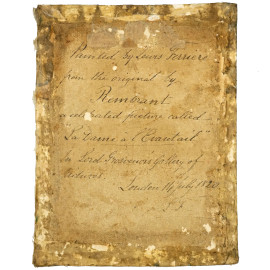 Painted by Lewis Ferrière
from the original by
Rembrant
a celebrated picture called
"La Dame à l'Eventail"
in Lord Grosvenor's Gallery of
Pictures.
London 14 July 18